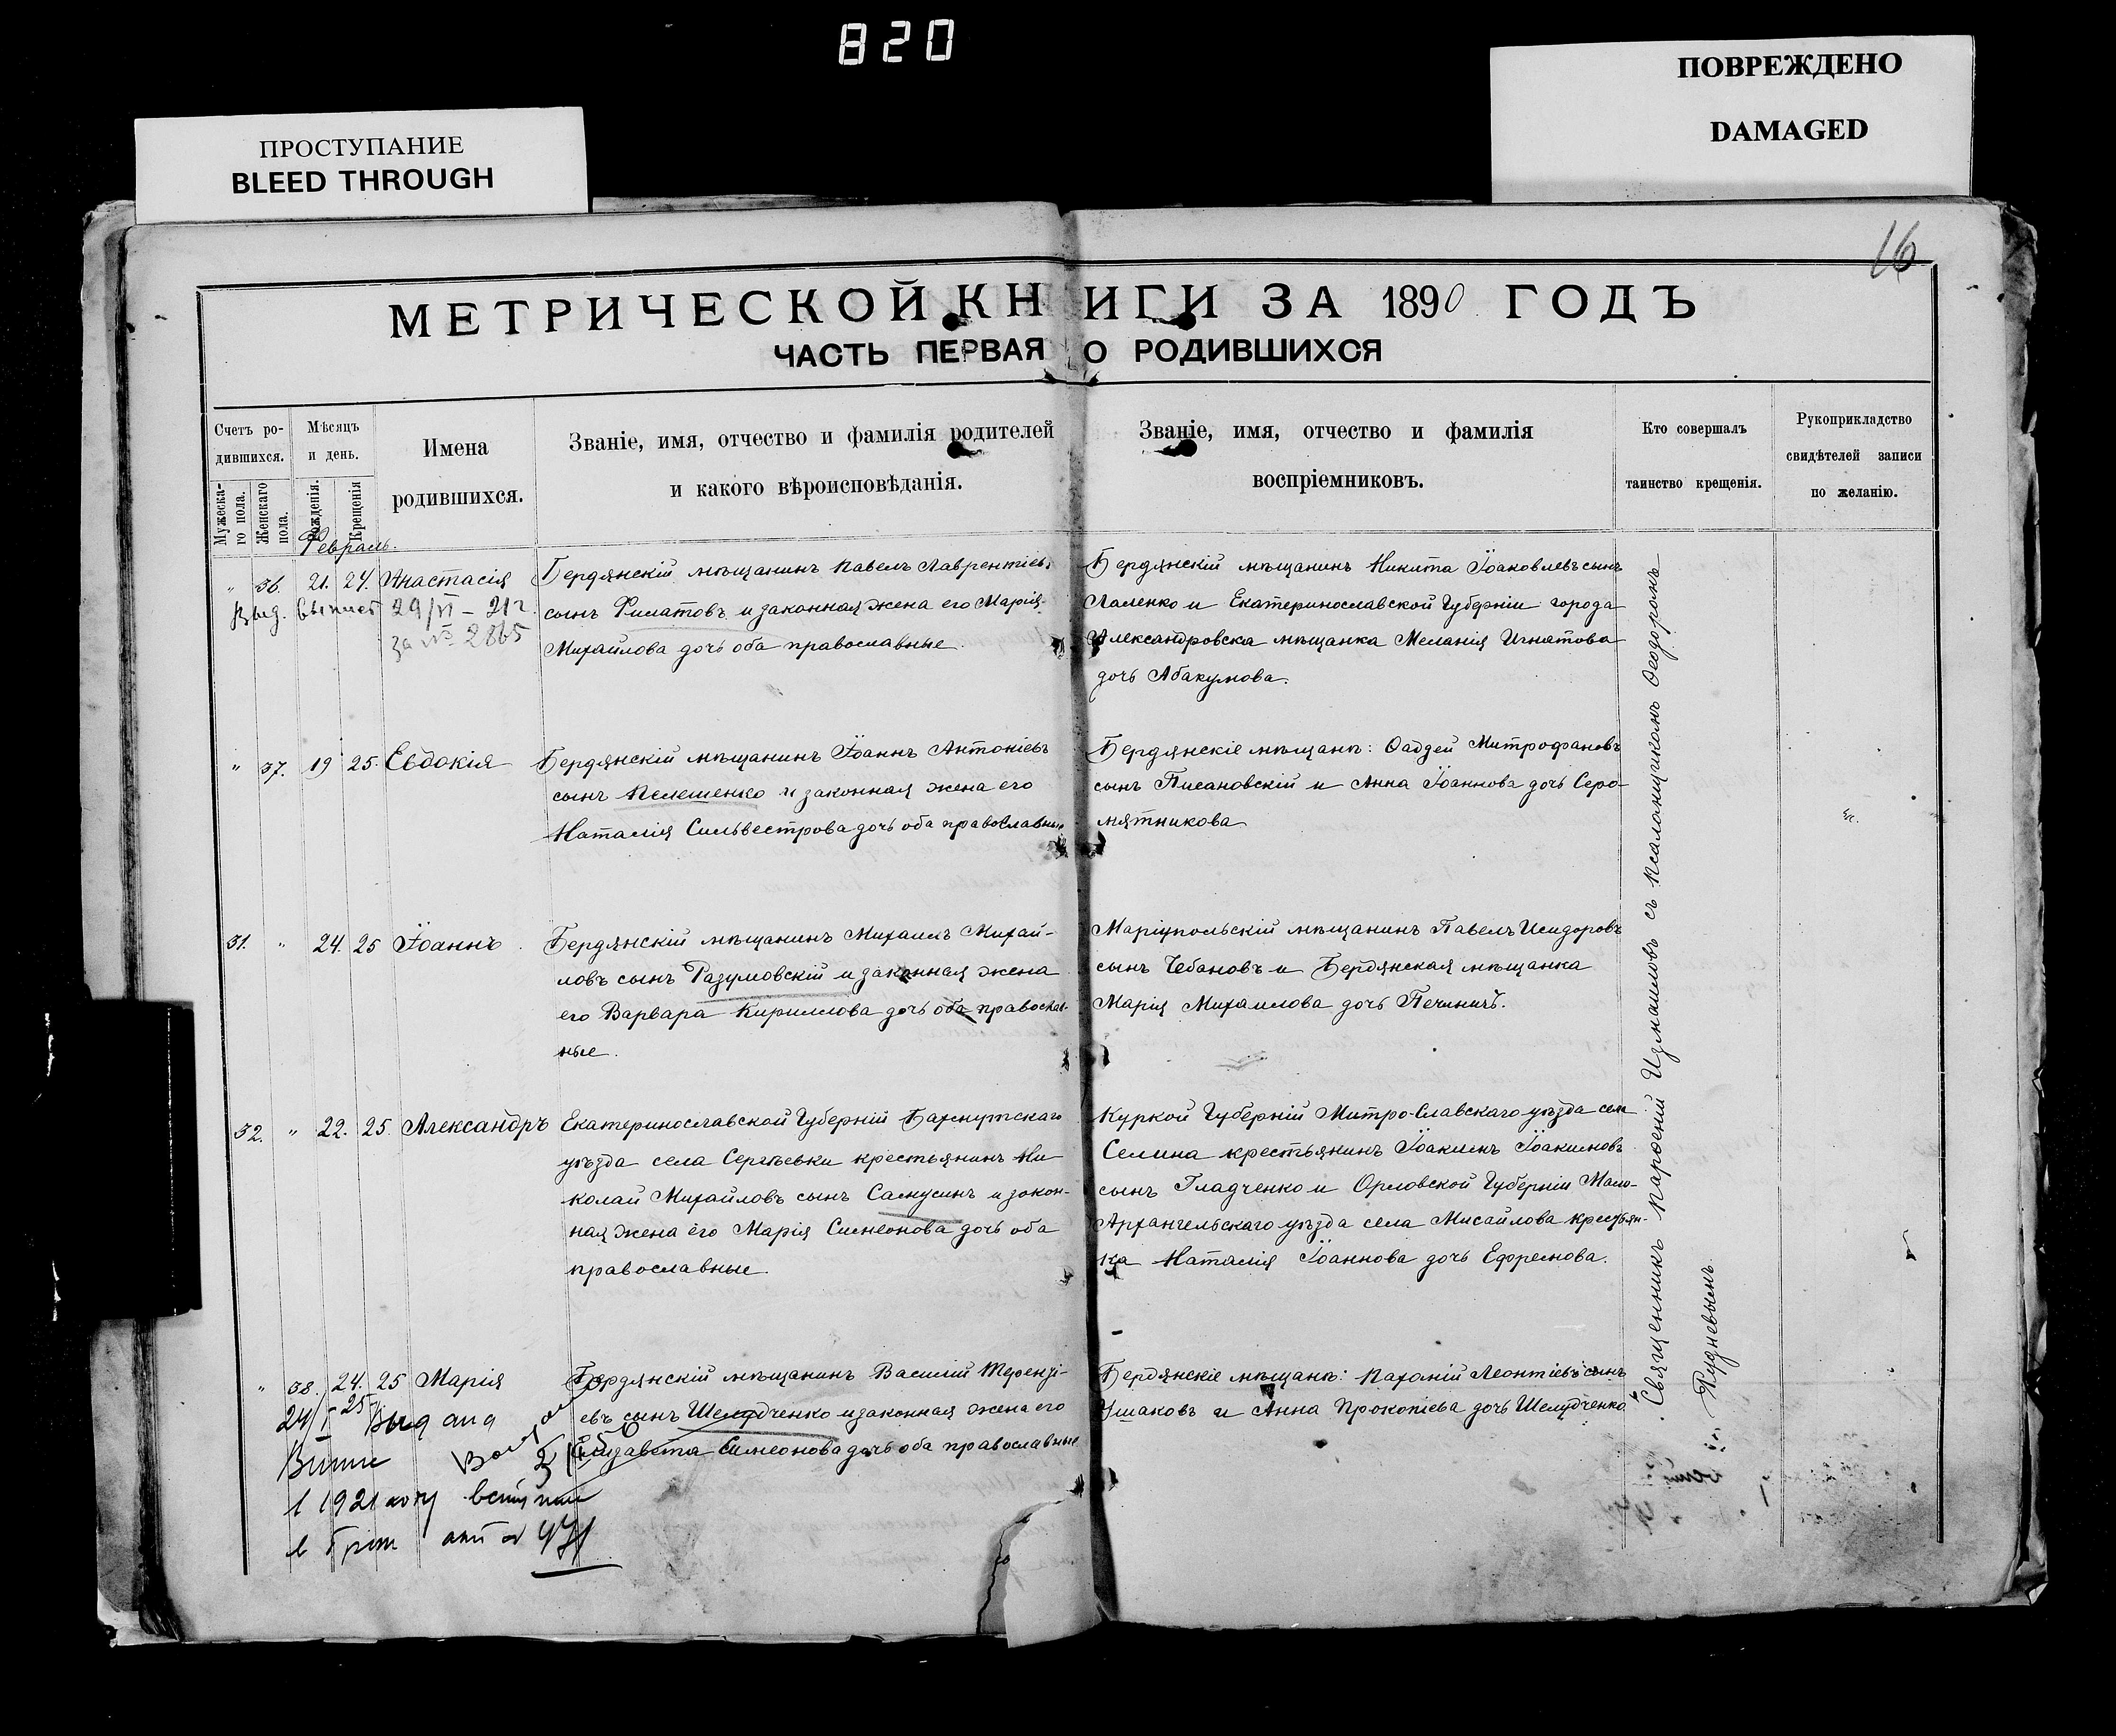 820
ПОВРЕЖДЕНО
DAMAGED
ПРОСТУПАНИЕ
BLEED THROUGH
16
МЕТРИЧЕСКОЙ КНИГИ ЗА 1890 ГОДЪ
ЧАСТЬ ПЕРВАЯ О РОДИВШИХСЯ
Счетъ ро-
дившихся.
Мужеска-
го пола.
Женскаго
пола.
Мѣсяцъ
и день.
Рожденія.
Крещенія
Имена
родившихся.
Званіе, имя, отчество и фамилія родителей
и какого вѣроисповѣданія.
Званіе, имя, отчество и фамилія
воспріемниковъ.
Кто совершалъ
таинство крещенія.
Рукоприкладство
свидѣтелей записи
по желанію.
Февраль.
" 36. 21. 24. Анастасія
Выд. 29/VI – 21 г.
за № 2865
Бердянскій мѣщанинъ Павелъ Лаврентіевъ
сынъ Филатовъ и законная жена его Марія
Михайлова дочь оба православные.
Бердянскій мѣщанинъ Никита Іоаковлевъ сынъ
Лаленко и Екатеринославской Губерніи города
Александровска мѣщанка Меланія Игнатова
дочь Абакумова.
" 37. 19 25. Евдокія
Бердянскій мѣщанинъ Іоаннъ Антоніевъ
сынъ Пелешенко и законная жена его
Наталія Сильвестрова дочь оба православные
Бердянскіе мѣщане: Фаддей Митрофановъ
сынъ Писановскій и Анна Іоаннова дочь Серо-
мятникова
31. " 24. 25 Іоаннъ.
Бердянскій мѣщанинъ Михаилъ Михай-
ловъ сынъ Разумовскій и законная жена
его Варвара Кириллова дочь оба православ-
ные.
Маріупольскій мѣщанинъ Павелъ Исидоровъ
сынъ Чебановъ и Бердянская мѣщанка
Марія Михаилова дочь Печиничъ.
32. " 22. 25. Александръ
Екатеринославской Губерніи Бахмутскаго
уѣзда села Сергѣевки крестьянинъ Ни
колай Михайловъ сынъ Самусинъ и закон-
ная жена его Марія Симеонова дочь оба
православные.
Куркой Губерніи Митро-Славскаго уѣзда села
Селина крестьянинъ Іоакимъ Іоакимовъ
сынъ Гладченко и Орловской Губерніи Мало-
Архангельскаго уѣзда села Мисайлова крестьян-
ка Наталія Іоаннова дочь Ефремова.
" 38. 24. 25 Марія
Бердянскій мѣщанинъ Василій Терентi-
евъ сынъ Шелудченко и законная жена его
Елизавета Симеонова дочь оба православные
Бердянскіе мѣщане: Пахомій Леонтіевъ сынъ
Ушаковъ и Анна Прокопіева дочь Шелудченко
1921
471
Священникъ Измаиловъ съ псаломщикомъ Ѳеодоромъ
Рудневымъ.